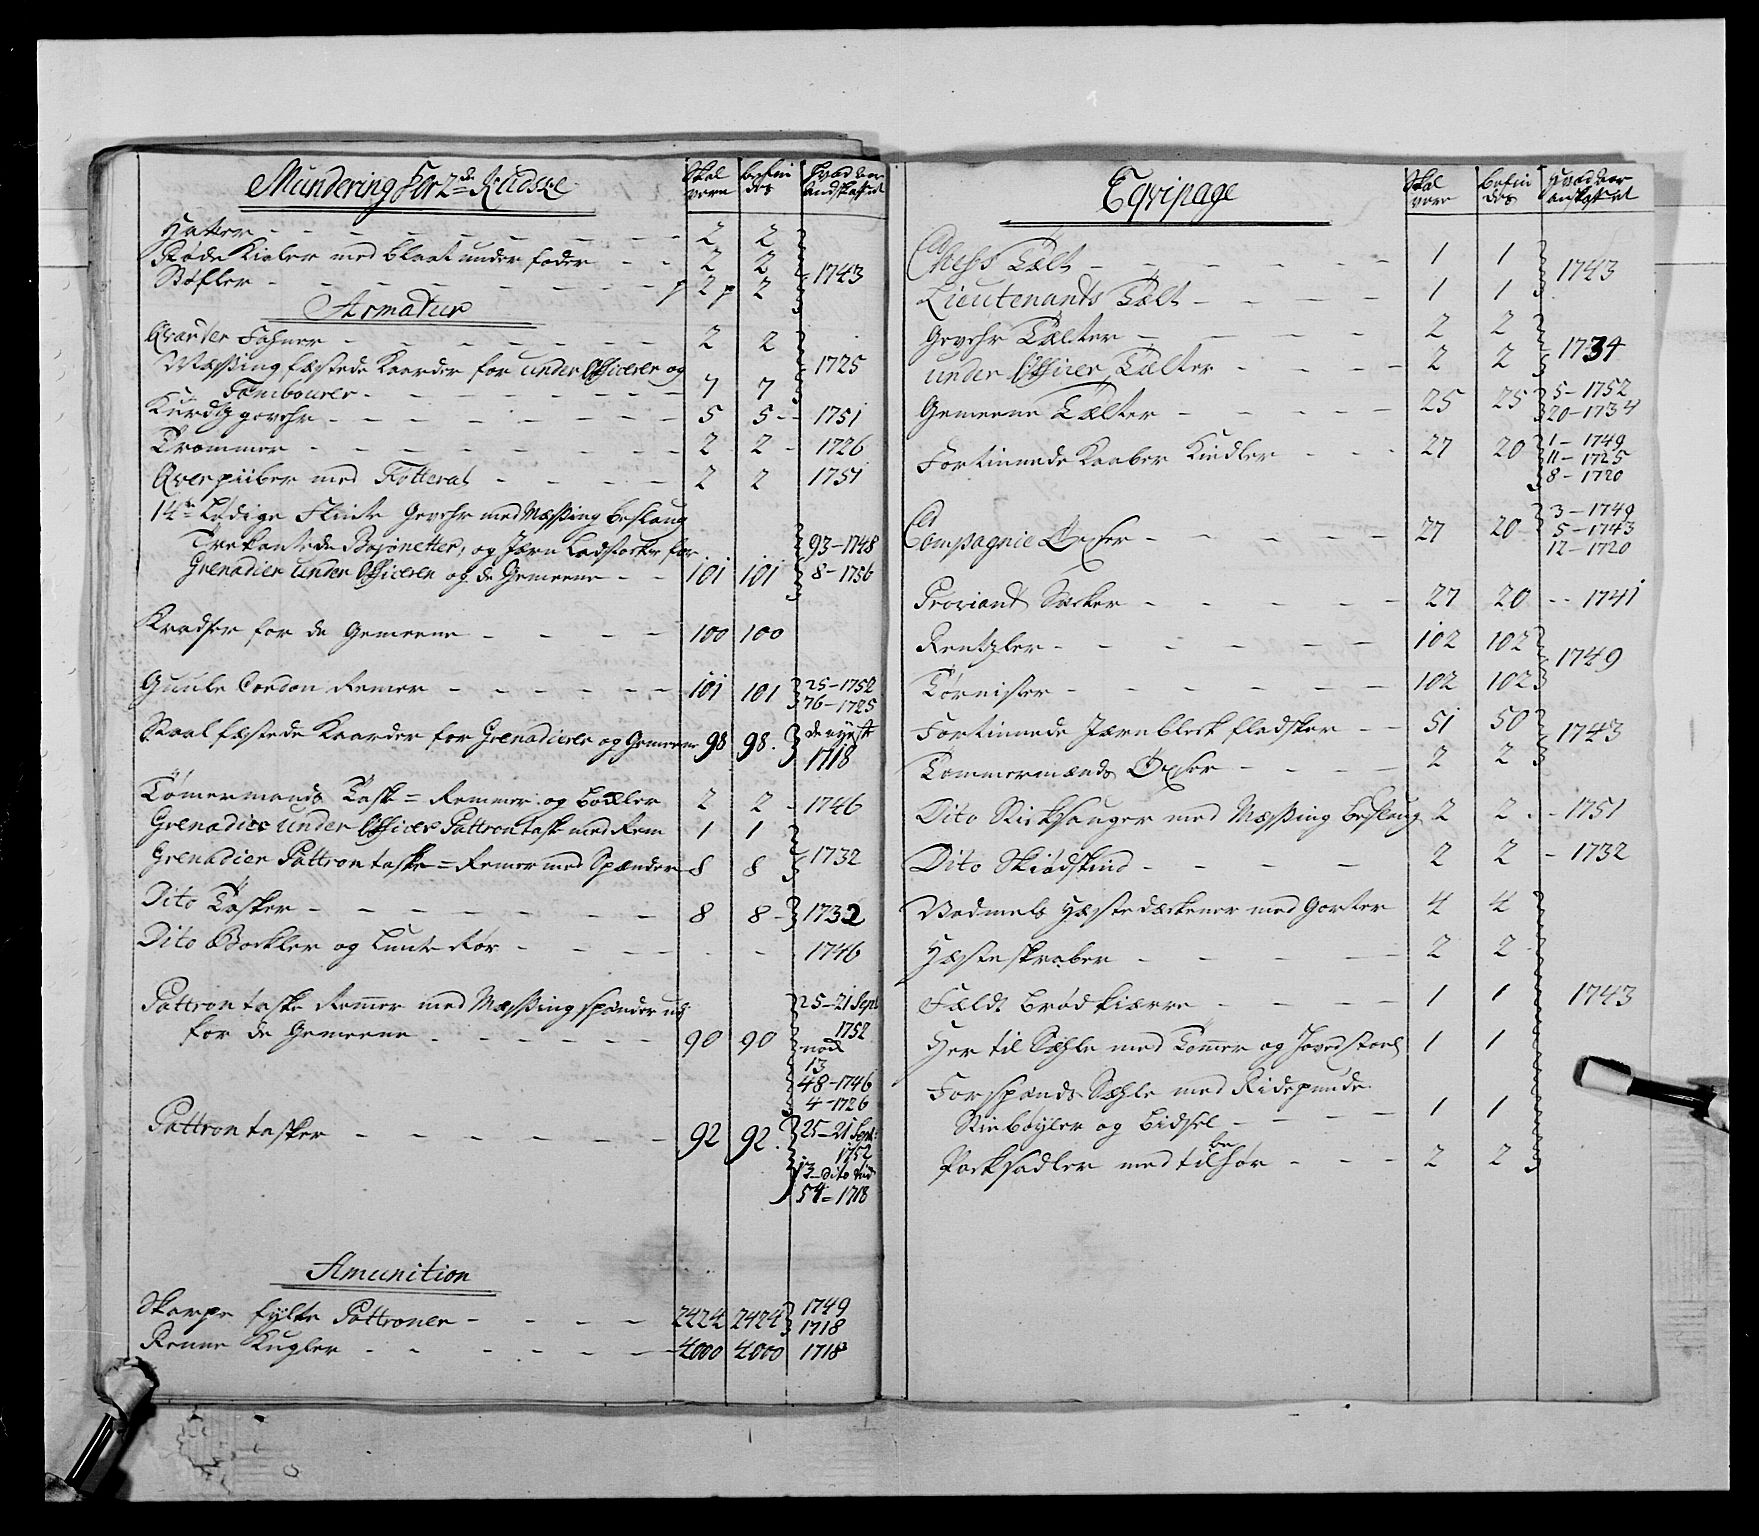 Mundering For 2de Kudske
Skal være
befin des
Hvad aar andskaffet
Hatter - - - 2 2
Røde Kioler med blaat under foder - - 2 2 1743
Støfler - - - p 2 p 2
Armatur
Qvarteer Fahner - - - 2 2
Mæssing fæstede Kaarder for under Officerer og 1725
Tambourer - - - 7 7
Kurtz gevehr - - - 5 5 - - 1751
Trommer - - - 2 2 - 1726
Qverpiiber med Fotteral - - - 2 2 1751
14n Lødige Flinte Gevehr med Mæssing beslaug
Trekantede Bajonetter, og Jærn Ladstocker for 93 - 1748
Grenadier Under Officerer og de Gemeene - - 101 101 8 - 1756
Kradser for de Gemeene - - - 100 100
Guule Cordon Remer - - - 101 101 25 - 1752
76 - 1725
Staal fæstede Kaarder for Grenadierer og Gemeene 98 98. de nyeste
1718
Tømermands Taske = Remmer og Boxler 2 2 - 1746
Grenadier Under Officer Pattrontask med Rem 1 1
Grenadier Pattrontaske = Remer med Spænder 8 8 1732
Dito Tasker - - - 8 8 - 1732
Dito Bockler og Lunte Rør - - - 1746
Pattrontaske Remmer med Mæssing spænder 25 - 21 Sept
for de Gemeene - - - 90 90 1752
13
48 - 1746
4 - 1726
Pattrontasker - - - 92 92. 25 - 21 Sept:
1752
13 - dito
54 - 1718
Amunition
Skarpe fylte Pattroner - - - 2424 2424 1749
1718
Renne Kugler - - - 4000 4000 1718
Eqvipage
Skal være
befin des
Hvad aar anskaffet
Chefs Tælt - - - 1 1 1743
Lieutenants Tælt - - - 1 1
Gevehr Tælter - - - 2 2
under Officer Tælter - - - 2 2 1734
Gemeene Tælter - - - 25 25 5 - 1752
20 - 1734
Fortinnede Kaaber Kiedler - - - 27 20 1 - 1749
11 - 1725
8 - 1720
3 - 1749
Compagnie Øxer - - - 27 20 5 - 1743
12 - 1720
Proviant Sæcker - - - 27 20 - - 1741
Rentzler - - - 102 102 1749
Tørnister - - - 102 102
Fortinnede Jærnbleck fladsker - - 51 50 1743
Tømmermænds Øxer - - - 2 2
Dito Stiksauger med Mæssing beslaug 2 2 - 1751
Dito Skiødskind - - - 2 2 - 1732
Vadmels Hæstedæckener med Gorter 4 4
Hæsteskraber - - - 2 2
Fældt Brødkiærre - - - 1 1 1743
Her til Sæhle med Tømmer og Hovedstoel 1 1
Forspands Sæhle med Ridepuude
Stiebøyler og Bidsel - - - 1 1
Packsadler med tilbehør - - - 2 2